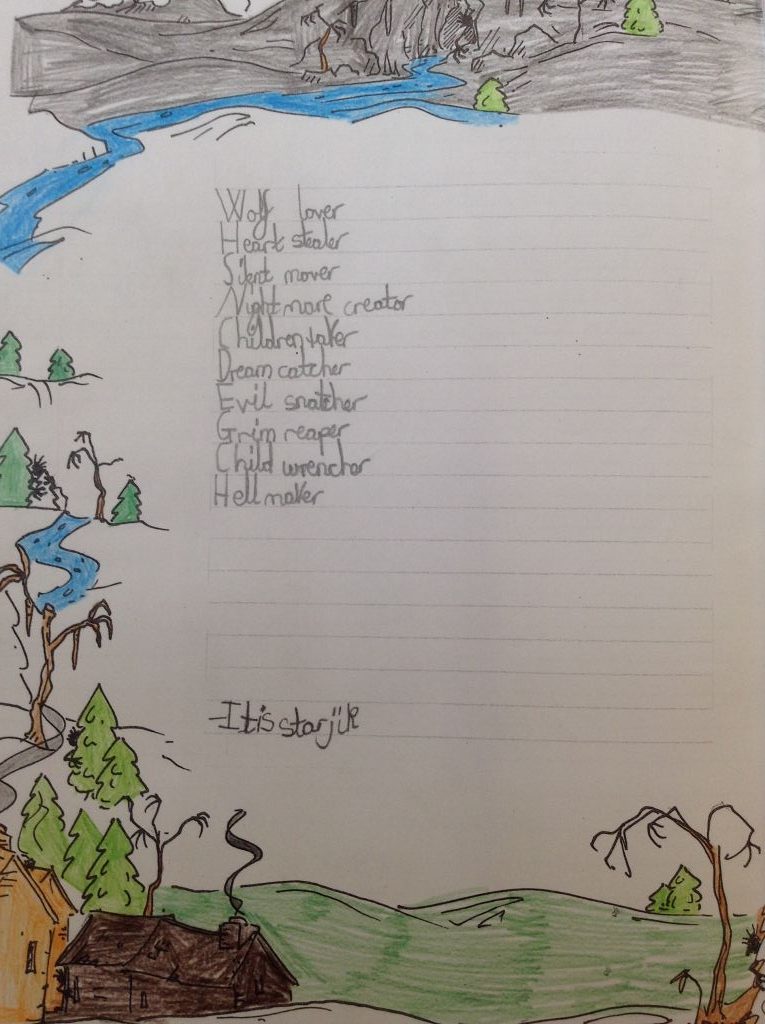 Wolf lover
Heart stealer
Silent mover
Nightmare creator
Children taker
Dream catcher
Evil snatcher
Grim reaper
Child wrencher
Hell maker
-It is starjik